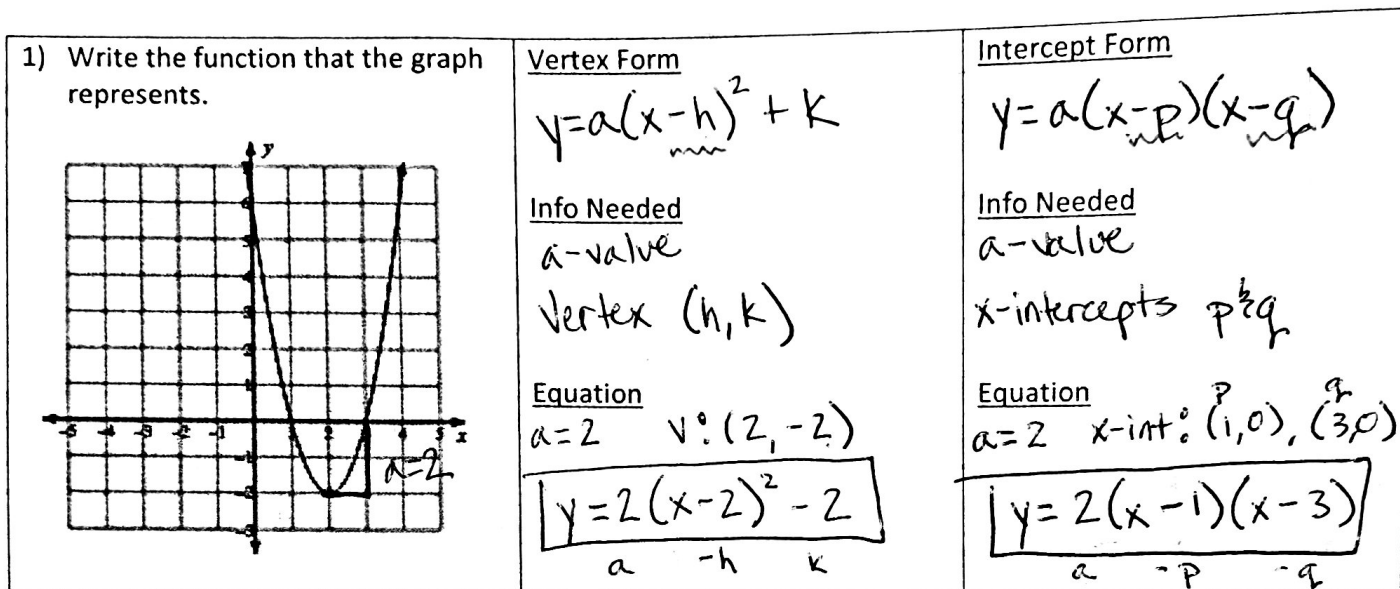 1) Write the function that the graph
represents.
y
7
6
5
4
3
2
1
-5 -4 -3 -2 -1 1 2 3 4 5 x
-1
-2
-3
a=2
Vertex Form
y=a(x-h)² + k
Info Needed
a-value
Vertex (h,k)
Equation
a=2 V: (2,-2)
y=2(x-2)² - 2
a -h k
Intercept Form
y=a(x-p)(x-q)
Info Needed
a-value
x-intercepts p & q
Equation p q
a=2 x-int: (1,0), (3,0)
y= 2(x-1)(x-3)
a -p -q